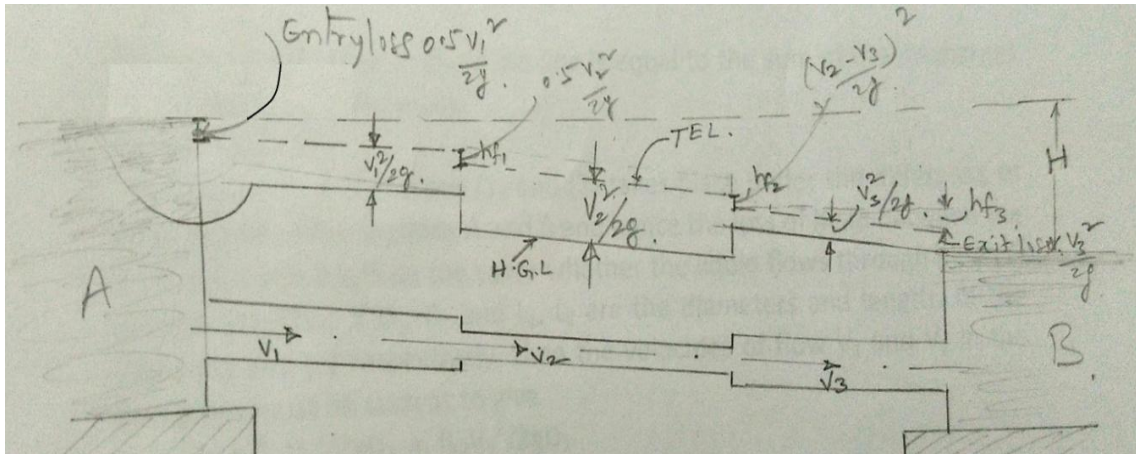 Entry loss 0.5 V₁²/2g.
0.5 V₂²/2g
(V₂-V₃)²/2g
V₁²/2g.
hf₁
TEL.
V₂²/2g.
hf₂
V₃²/2g.
hf₃.
H
H.G.L
V₃²/2g
A
V₁
V₂
V₃
B.